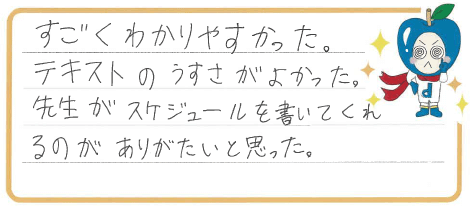 すごくわかりやすかった。
テキストのうすさがよかった。
先生がスケジュールを書いてくれ
るのがありがたいと思った。
d